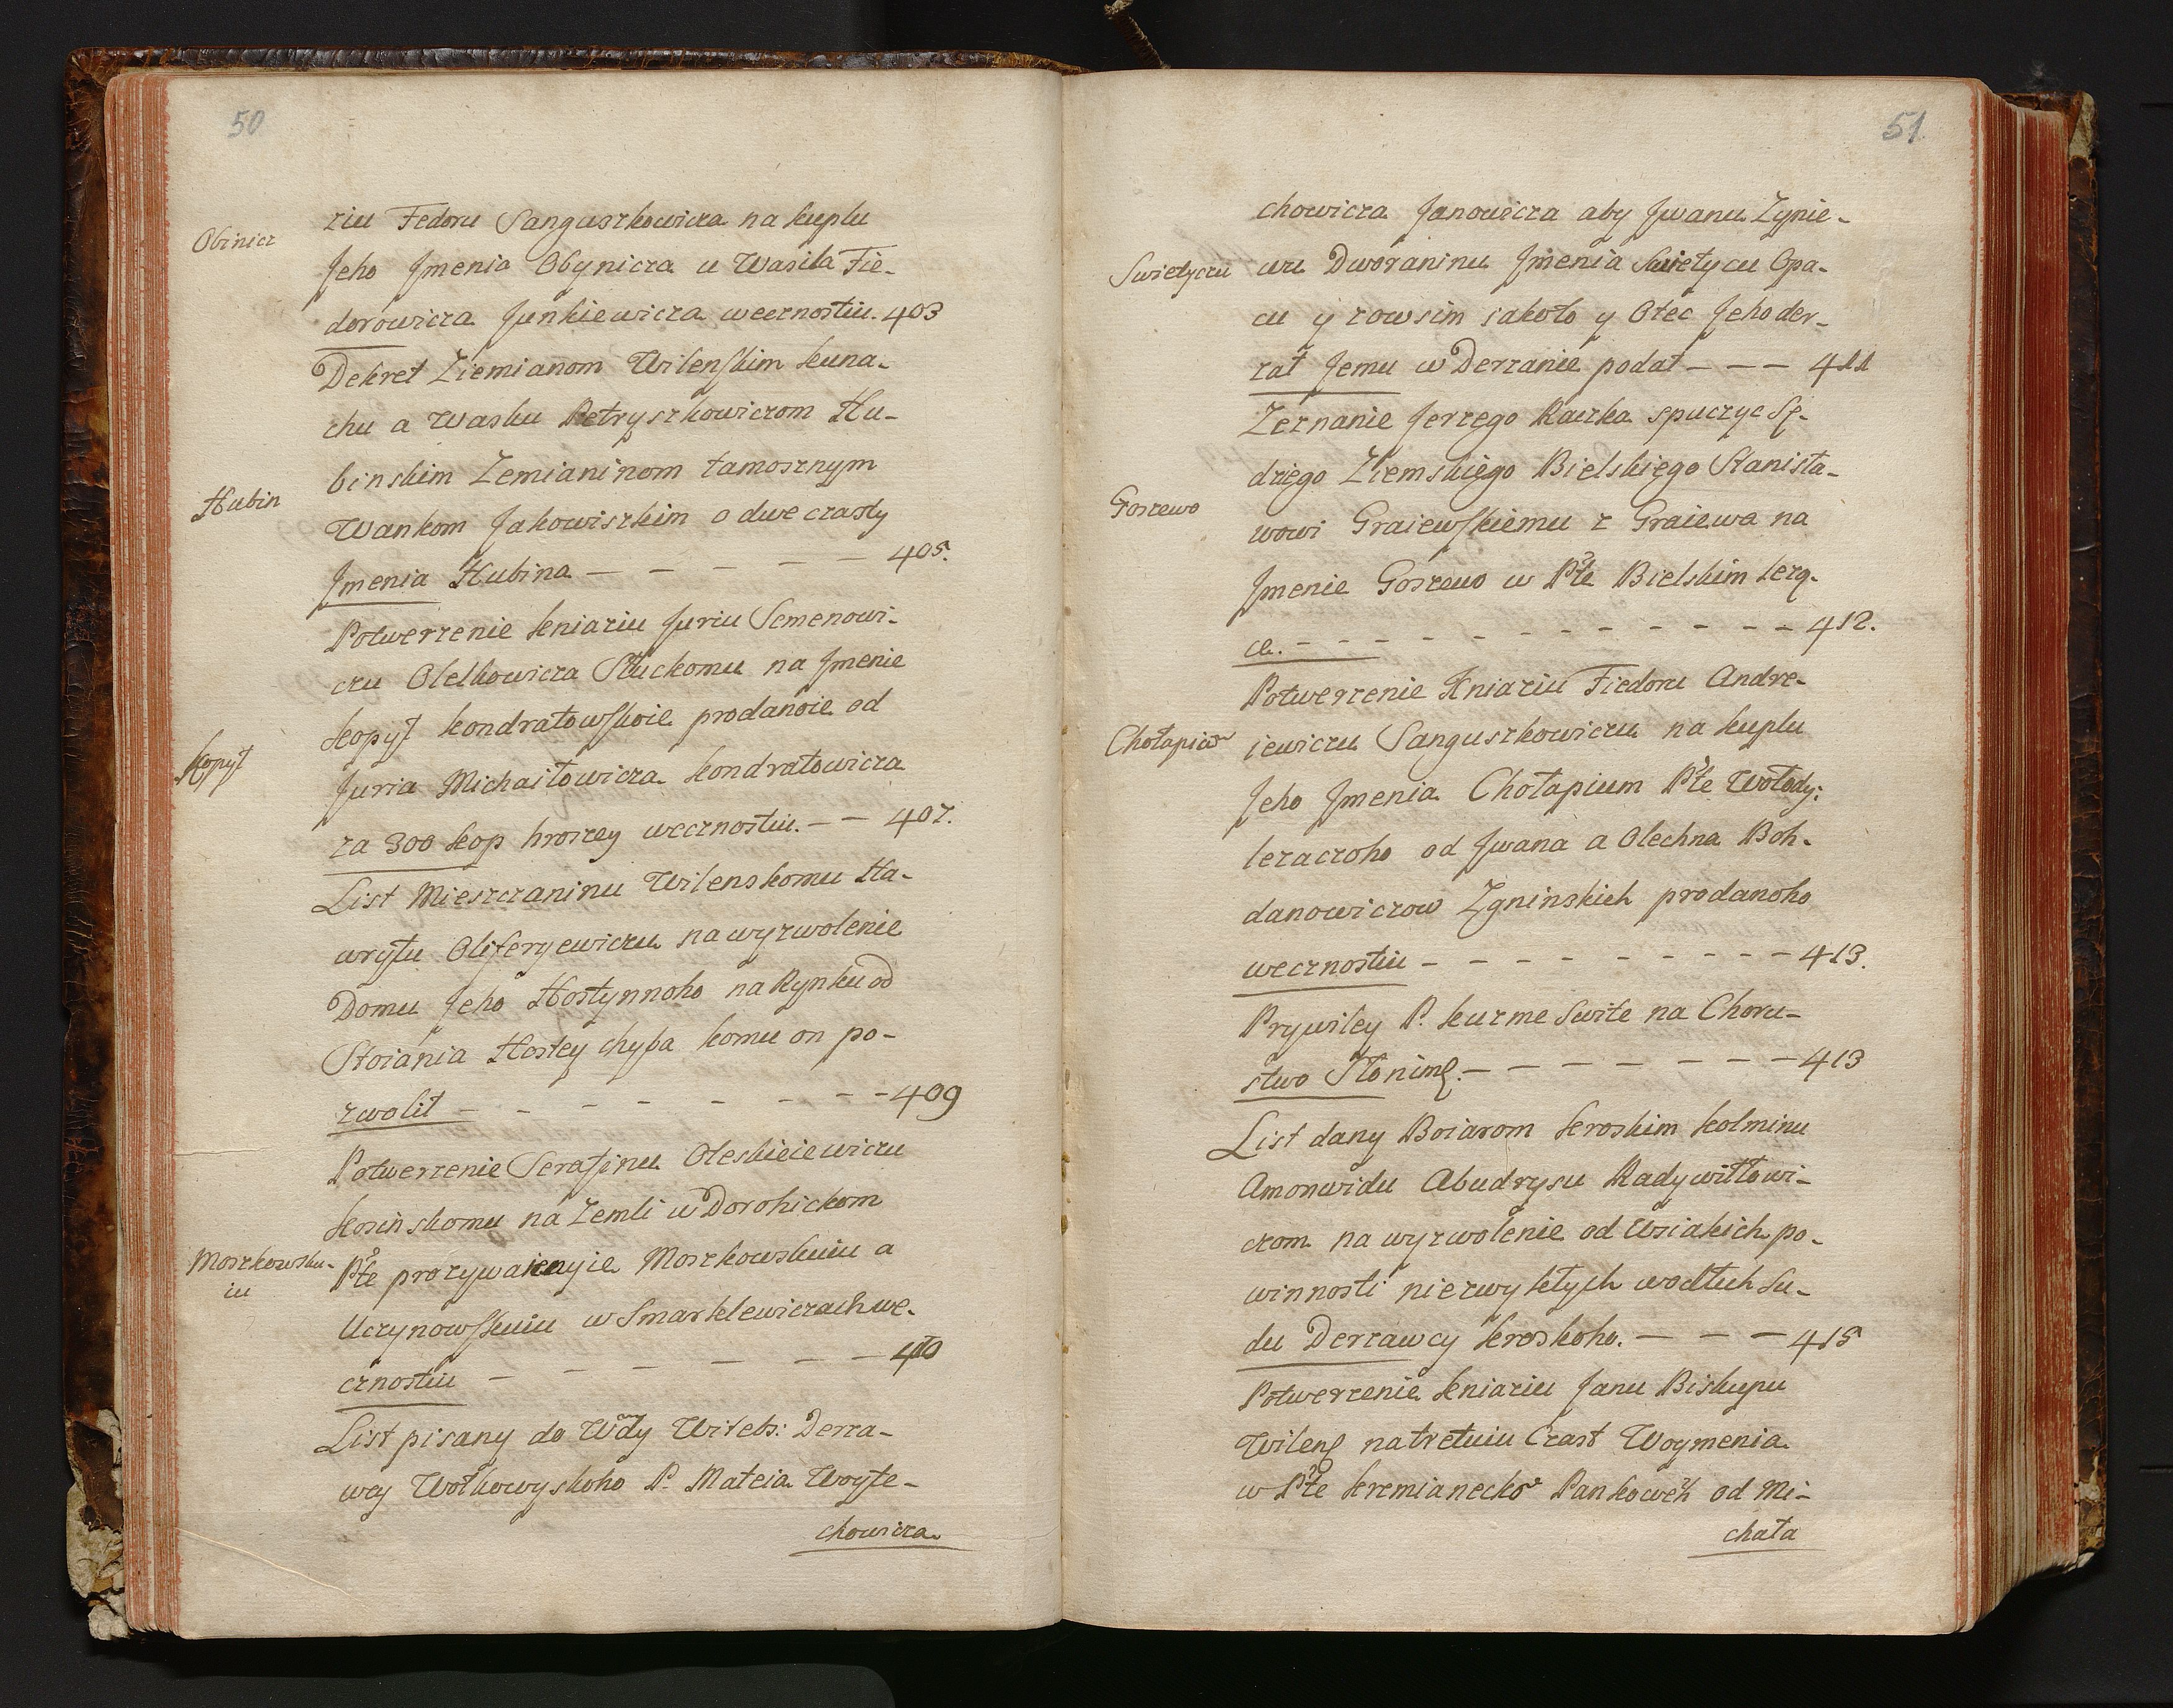 50
Obinicz
ziu Fedoru Sanguszkowicza na kuplu
Jeho Jmenia Obynicza u Wasila Fie-
dorowicza Junkiewicza weeznostiu. 403
Dekret Ziemianom Wilenskim kuna-
chu a Wasku Petryszkowiczom Hu-
binskim Zemianinom tamosznym
Hubin
Wankom Jakowiszkim o dwe czasty
Jmenia Hubina — — — — — 405.
Potwerzenie kniaziu Juriu Semenowi-
czu Olelkowicza Słuckomu na Jmenie
Kopyſ kondratowskoie prodanoie od
Kopyſ
Juria Michaiłowicza kondratowicza
za 300 kop hroszey wecznostiu. — — 407.
List Mieszczaninu Wilenskomu Ha-
wryłu Oliferyewiczu na wyzwolenie
Domu Jeho Hostynnoho na Rynku od
Stoiania Hostey chyba komu on po-
zwolit — — — — — — — 409
Potwerzenie Serafinu Oleskieiewiczu
kosinskomu na Zemli w Dorohickom
Moszkowsku-
iu
Pte prozywaiemyie Moszkowskuiu a
Uczynowskuiu w Smarklewiczach we-
cznostiu — — — — — — 410
List pisany do Wdy Witebs: Derza-
wcy Wołkowyskoho P. Mateia Woyte-
chowicza
51
chowicza Janowicza aby Jwanu Zynie-
Swietyczu
wu Dworaninu Jmenia Swietycu Opa-
cu y zowsim iakoło y Otec Jeho der-
zał Jemu w Derzanie podał — — — 411
Zeznanie Jerzego Raczka spuczyc Sę-
dziego Ziemskiego Bielskiego Stanisła-
Goszewo
wowi Graiewskiemu z Graiewa na
Jmenie Goszewo w Pte Bielskim lezą-
ce. — — — — — — — — — — 412.
Potwerzenie Kniaziu Fiedoru Andre-
Chołapiów
iewiczu Sanguszkowiczu na kuplu
Jeho Jmenia Chołapium Pte Wołody:
lezaczoho od Jwana a Olechna Boh-
danowiczow Zgninskich prodanoho
wecznostiu — — — — — — — — — 413.
Prywiley P. kuzme Swite na Choru-
stwo Słonimſ. — — — — — — — 413
List dany Boiarom kroskim kolminu
Amonwidu Abudrysu Radywiłłowi-
czom na wyzwolenie od Wsiakich po-
winnosti niezwykłych wodłuh Su-
du Derzawcy kroskoho. — — — 415
Potwerzenie kniaziu Janu Biskupu
Wilenſ na tretuiu Czast Woymenia
w Pte kremianecko Pankoweh od Mi-
chała